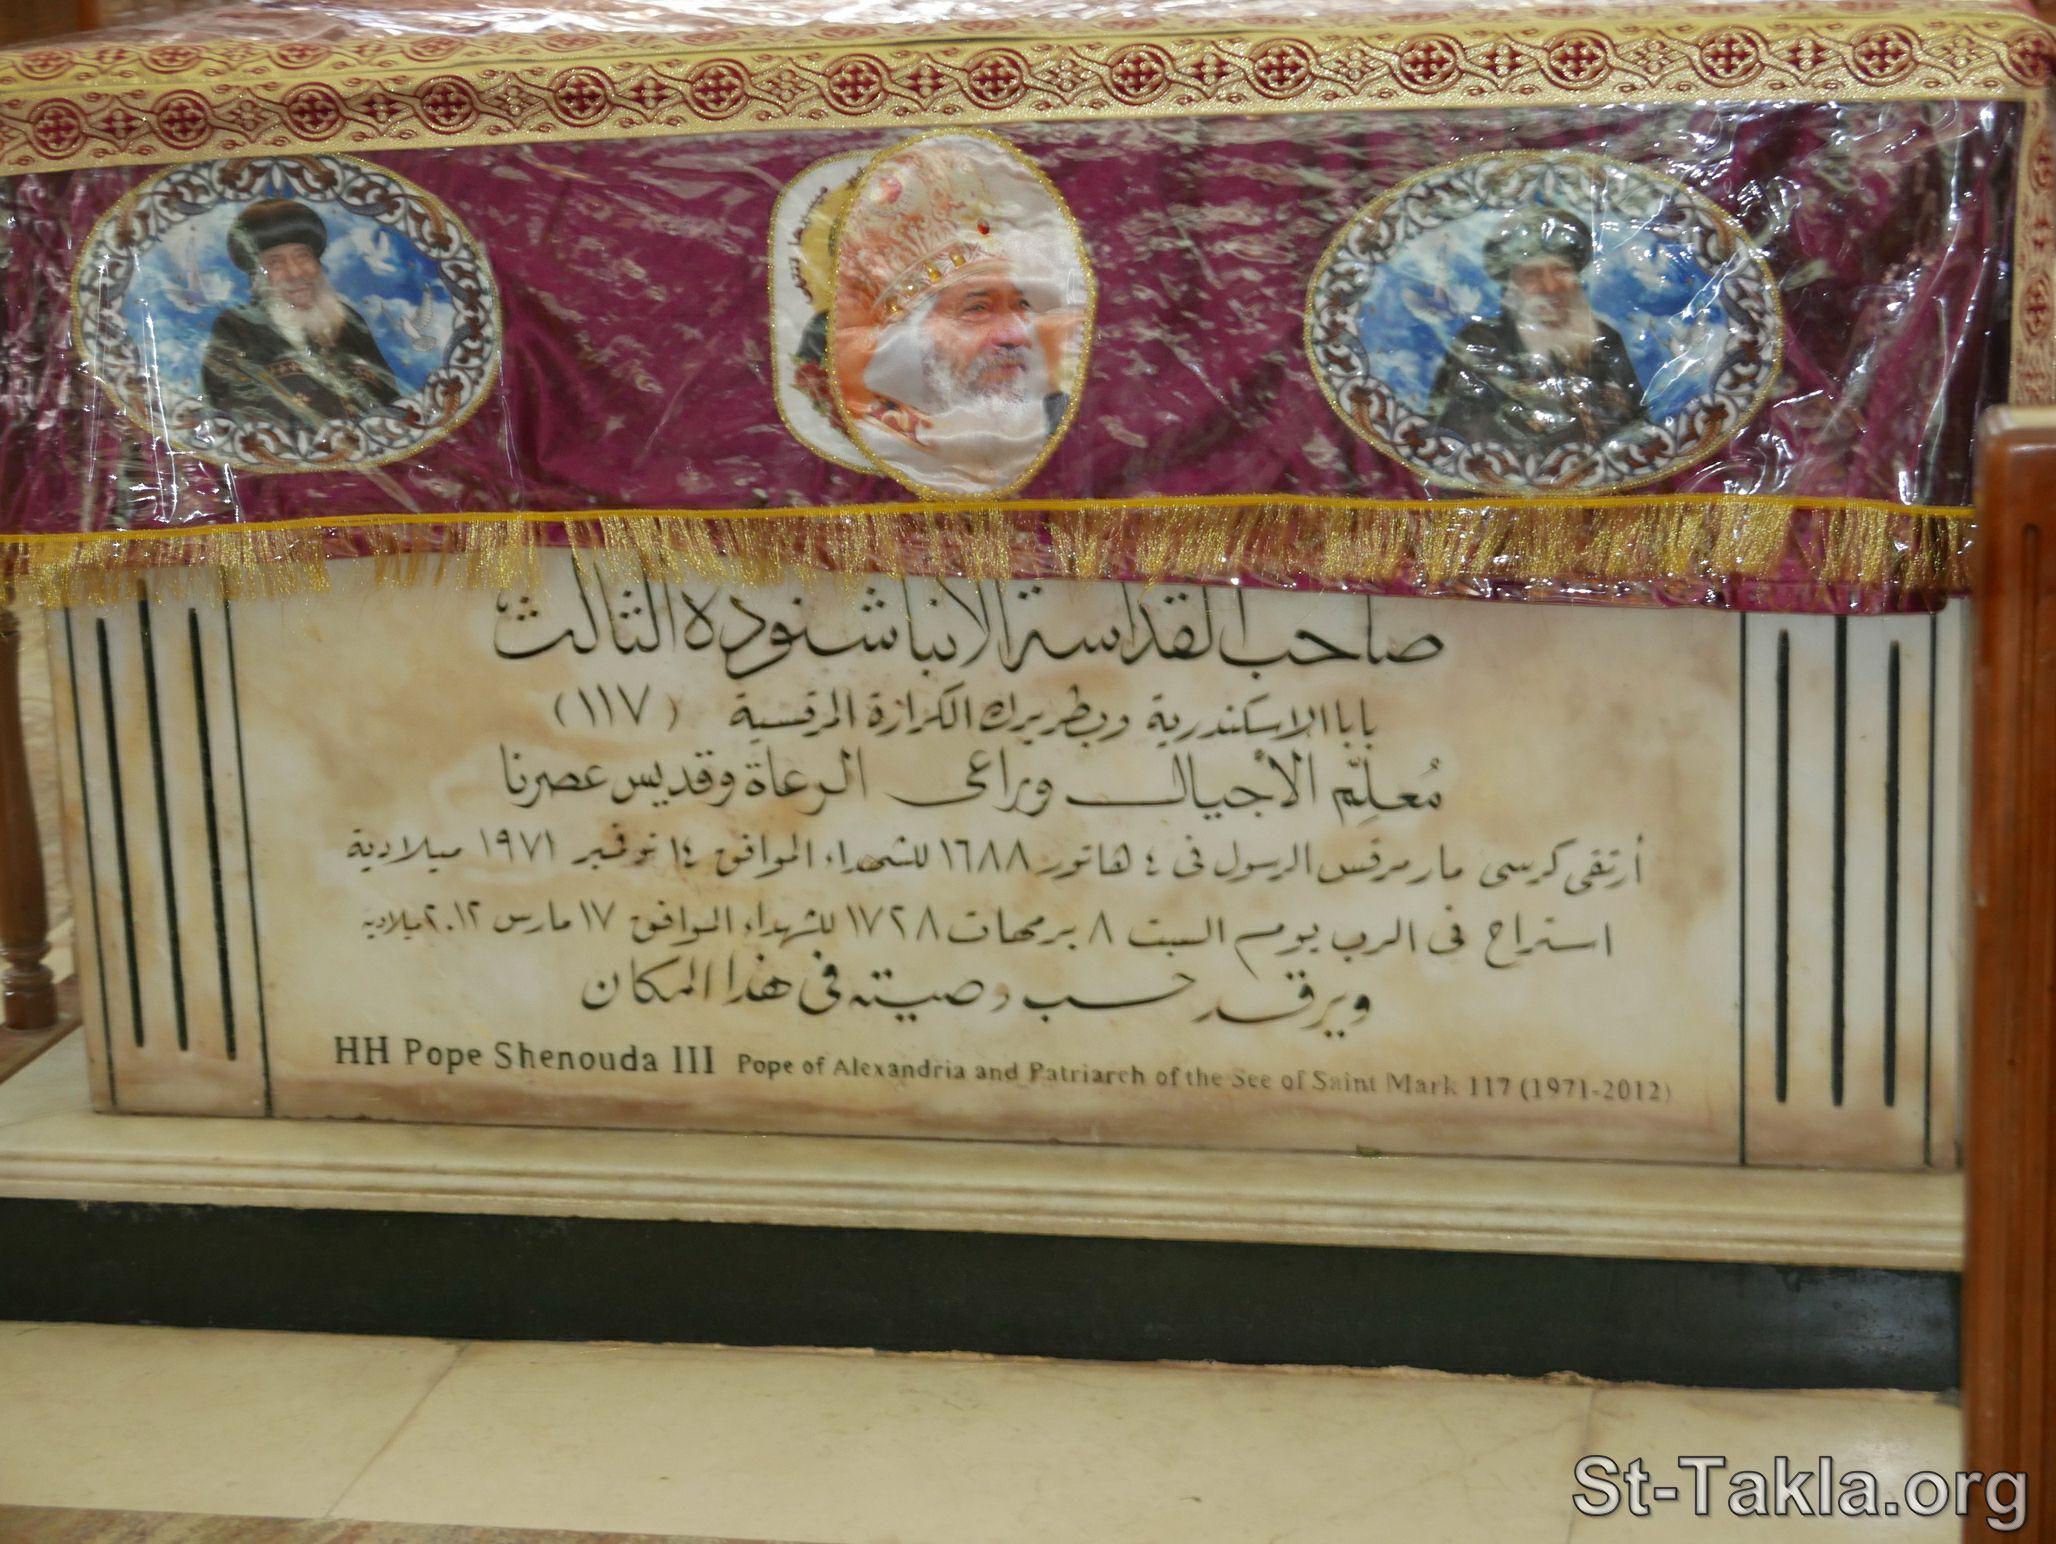 صاحب القداسة الانبا شنوده الثالث
بابا الاسكندرية وبطريرك الكرازة المرقسية (١١٧)
مُعلِّم الأجيال وراعى الرعاة وقديس عصرنا
أرتقى كرسى مارمرقس الرسول فى ٤ هاتور ١٦٨٨ للشهداء الموافق ١٤ نوفمبر ١٩٧١ ميلادية
استراح فى الرب يوم السبت ٨ برمهات ١٧٢٨ للشهداء الموافق ١٧ مارس ٢٠١٢ ميلادية
ويرقد حسب وصيته فى هذا المكان
HH Pope Shenouda III Pope of Alexandria and Patriarch of the See of Saint Mark 117 (1971-2012)
St-Takla.org